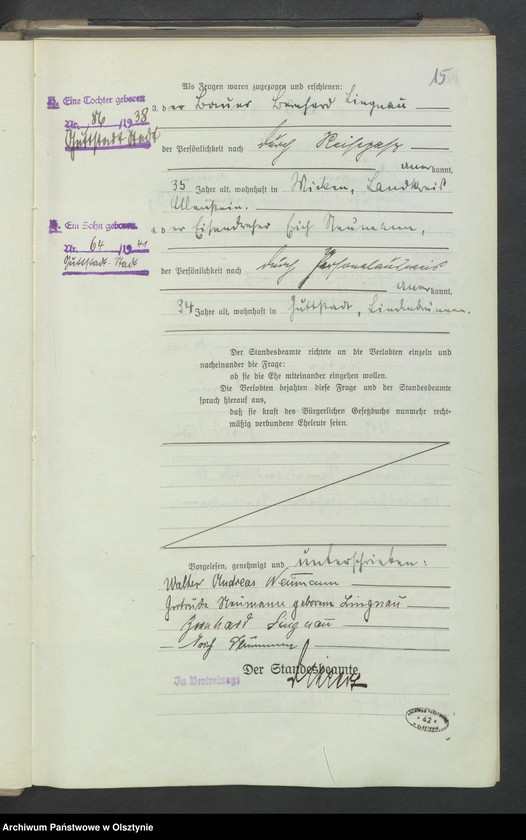 15
Als Zeugen waren zugezogen und erschienen:
Eine Tochter geboren
Nr. 86/1938
Guttstadt Stadt
3. der Bauer Bernhard Lingnau
der Persönlichkeit nach durch Reisepaß
anerkannt,
35 Jahre alt, wohnhaft in Wieken, Landkreis
Allenstein.
Ein Sohn geboren
Nr. 64/1941
Guttstadt-Stadt
4. der Eisendreher Erich Neumann,
der Persönlichkeit nach durch Personalausweis
anerkannt,
34 Jahre alt, wohnhaft in Guttstadt,
Der Standesbeamte richtete an die Verlobten einzeln und
nacheinander die Frage:
ob sie die Ehe miteinander eingehen wollen.
Die Verlobten bejahten diese Frage und der Standesbeamte
sprach hierauf aus,
daß sie kraft des Bürgerlichen Gesetzbuchs nunmehr recht-
mäßig verbundene Eheleute seien.
Vorgelesen, genehmigt und unterschrieben:
Walter Andreas Neumann
Gertrude Neumann geborene Lingnau
Bernhard Lingnau
Neumann
Der Standesbeamte
In Vertretung:
ARCHIWUM PAŃSTWOWE
42
W OLSZTYNIE
Archiwum Państwowe w Olsztynie